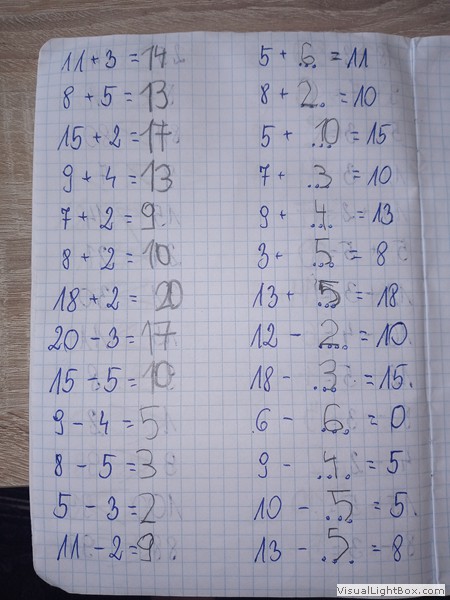 11 + 3 = 14
8 + 5 = 13
15 + 2 = 17
9 + 4 = 13
7 + 2 = 9
8 + 2 = 10
18 + 2 = 20
20 - 3 = 17
15 - 5 = 10
9 - 4 = 5
8 - 5 = 3
5 - 3 = 2
11 - 2 = 9
5 + 6 = 11
8 + 2 = 10
5 + 10 = 15
7 + 3 = 10
9 + 4 = 13
3 + 5 = 8
13 + 5 = 18
12 - 2 = 10
18 - 3 = 15
6 - 6 = 0
9 - 4 = 5
10 - 5 = 5
13 - 5 = 8
VisualLightBox.com